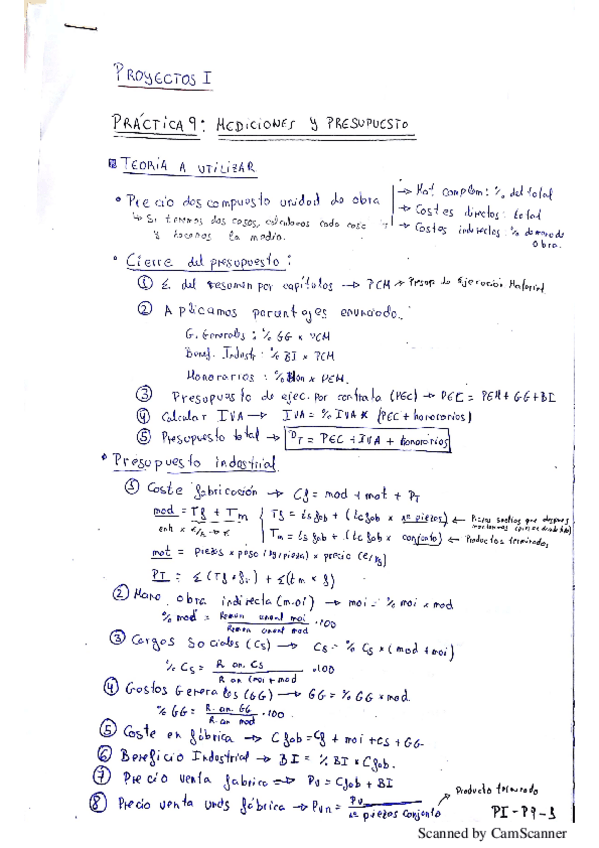 PROYECTOS I
PRÁCTICA 9: MEDICIONES Y PRESUPUESTO
TEORÍA A UTILIZAR
• Precio descompuesto unidad de obra
→ Mat. complem: % del total
→ Costes directos: total
→ Costes indirectos: % de mano de obra.
↳ Si tenemos dos casos, calculamos cada caso
y hacemos la media.
• Cierre del presupuesto:
① Σ del resumen por capítulos → PEM → Presup. de Ejecución Material
② Aplicamos porcentajes enunciado.
G. Generales: % GG x PEM
Benef. Indust: % BI x PEM
Honorarios: % Hon x PEM.
③ Presupuesto de ejec. por contrata (PEC) → PEC = PEM + GG + BI
④ Calcular IVA → IVA = % IVA x (PEC + honorarios)
⑤ Presupuesto total → PT = PEC + IVA + honorarios
• Presupuesto industrial
① Coste fabricación → Cf = mod + mat + PT
mod = Tf + Tm
Tf = ts fab + (tc fab x nº piezas) ← Piezas sueltas que después
Tm = ts fab + (tc fab x conjunto) ← Productos terminados
mat = piezas x peso (kg/pieza) x precio (€/kg)
PT = Σ (Tf x f) + Σ (tm x f)
② Mano obra indirecta (m.o.i) → moi = % moi x mod
% mod = Remun anual moi / Remun anual mod · 100
③ Cargas Sociales (Cs) → Cs = % Cs x (mod + moi)
% Cs = R. an. Cs / R. an (moi + mod · 100
④ Gastos Generales (GG) → GG = % GG x mod
% GG = R. an. GG / R. an mod · 100
⑤ Coste en fábrica → Cfab = Cf + moi + cs + GG
⑥ Beneficio Industrial → BI = % BI x Cfab.
⑦ Precio venta fabrica → Pv = Cfab + BI
⑧ Precio venta unds fábrica → Pvn = Pv / nº piezas conjunto → Producto terminado
PI-P9-3
Scanned by CamScanner